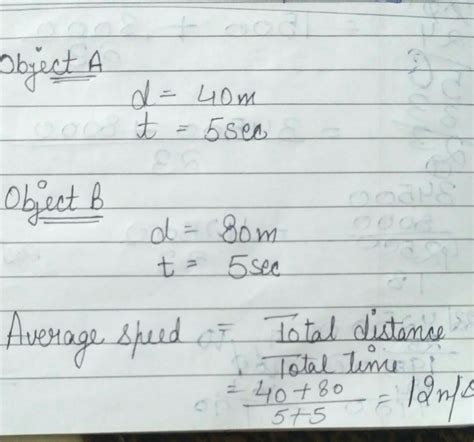 Object A
d = 40m
t = 5sec
Object B
d = 80m
t = 5sec
Average speed = Total distance
Total time
= 40 + 80
5+5
= 12m/s